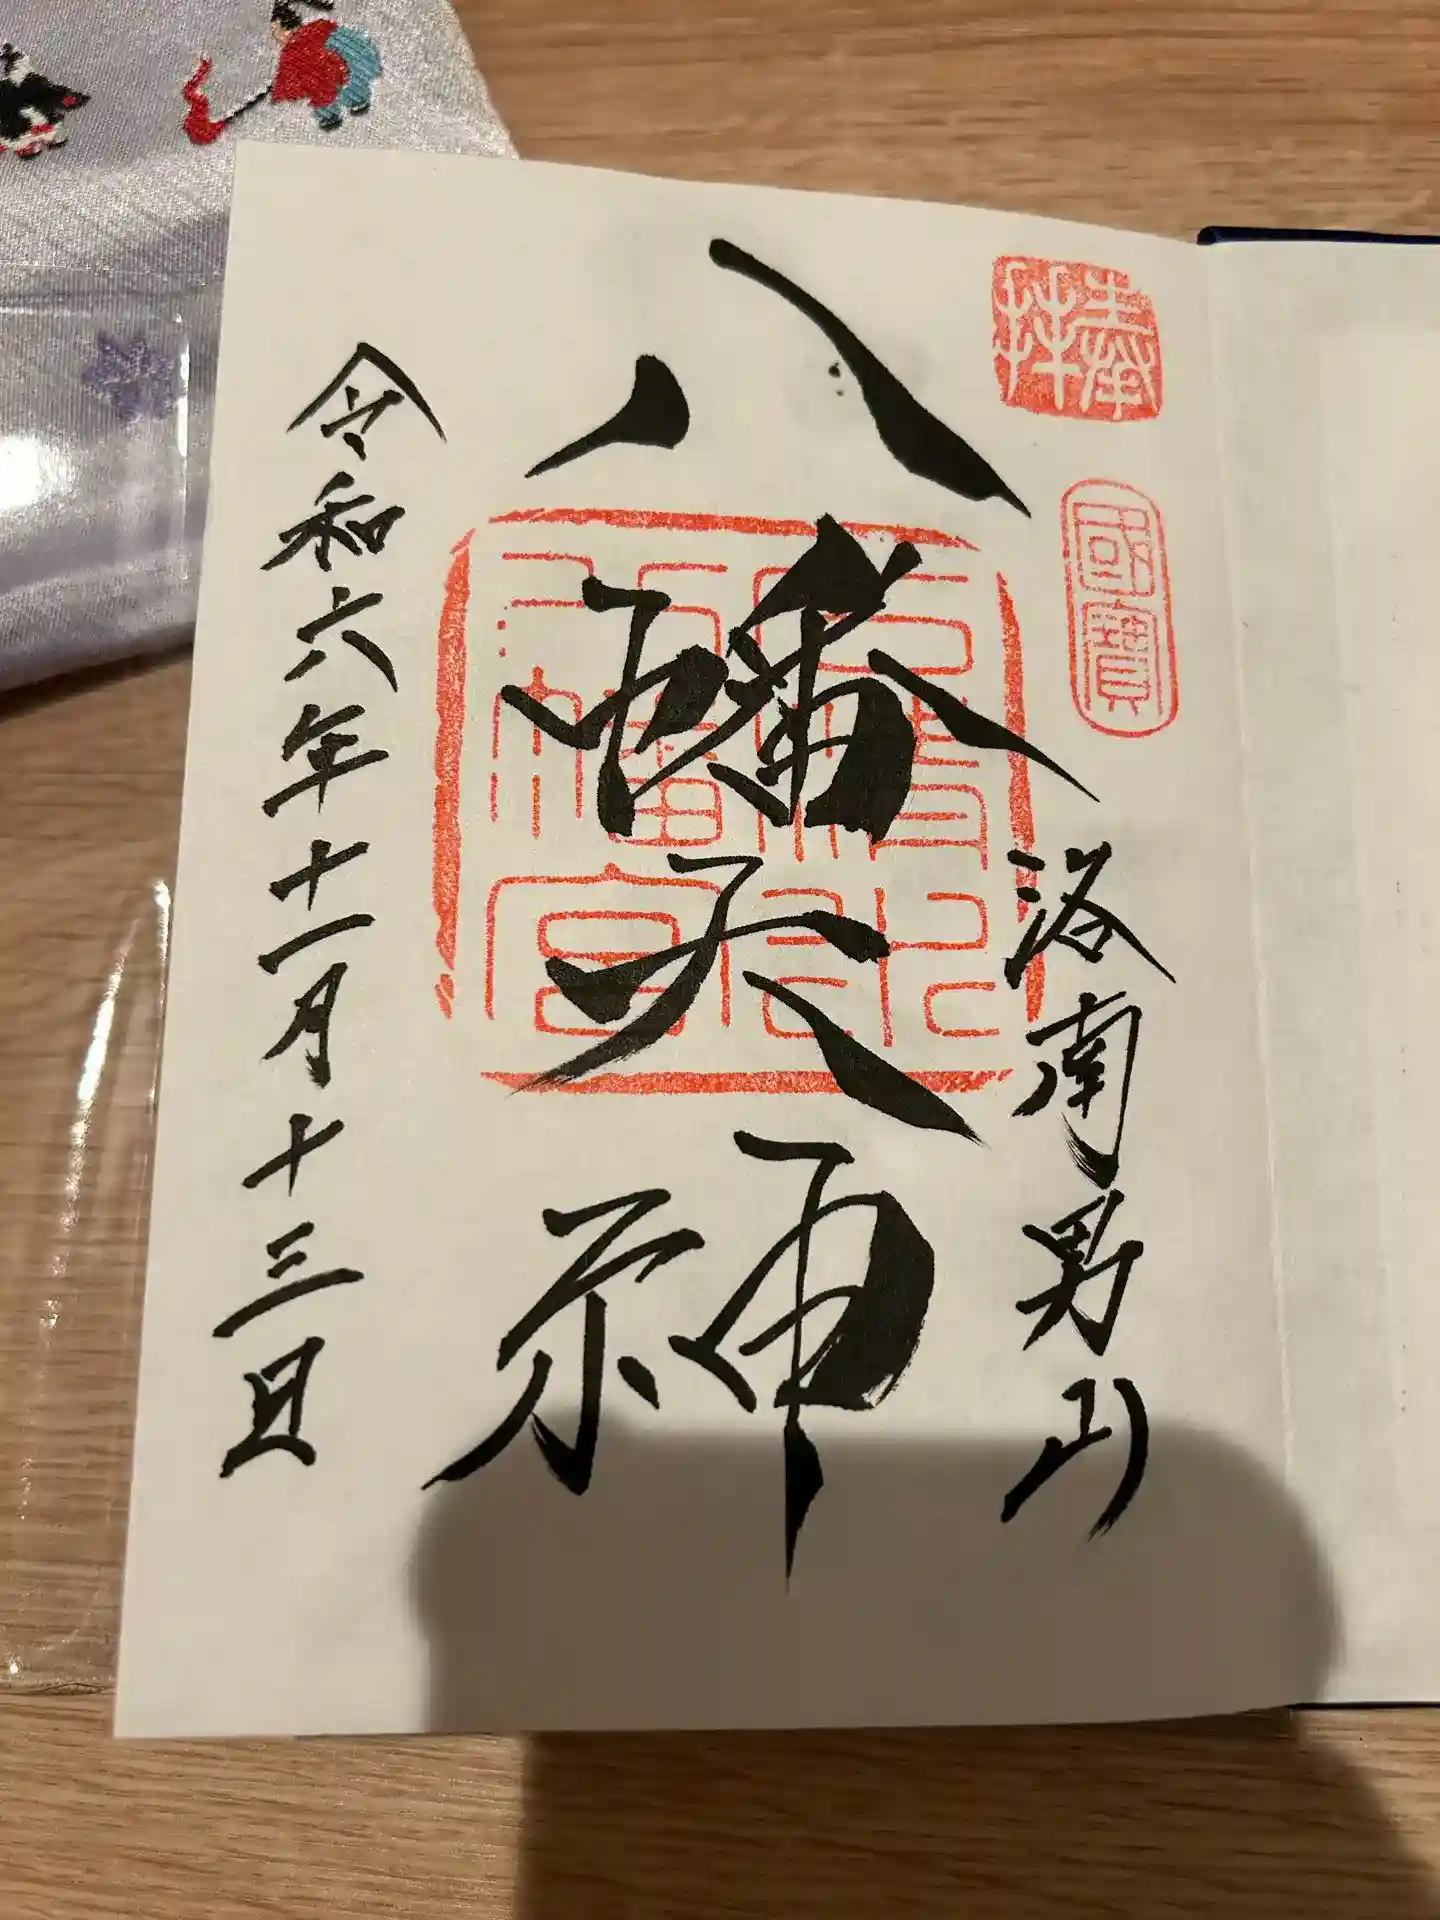 奉拝
國寳
洛南男山
八幡大神
石清水八幡宮
令和六年十一月十三日